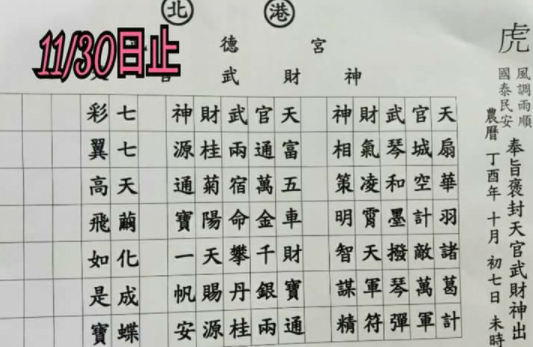 北港
11/30日止
德宮
武財神
虎
風調雨順
國泰民安
奉旨褒封天官武財神出
農曆丁酉年十月初七日未時
天扇華羽諸葛計
官城空計敵萬軍
武琴和墨撥琴彈
財氣凌霄天軍符
神相策明智謀精
天富五車財寶通
官通萬金千銀兩
武兩宿命攀丹桂
財桂菊陽天賜源
神源通寶一帆安
七七天繭化成蝶
彩翼高飛如是寶